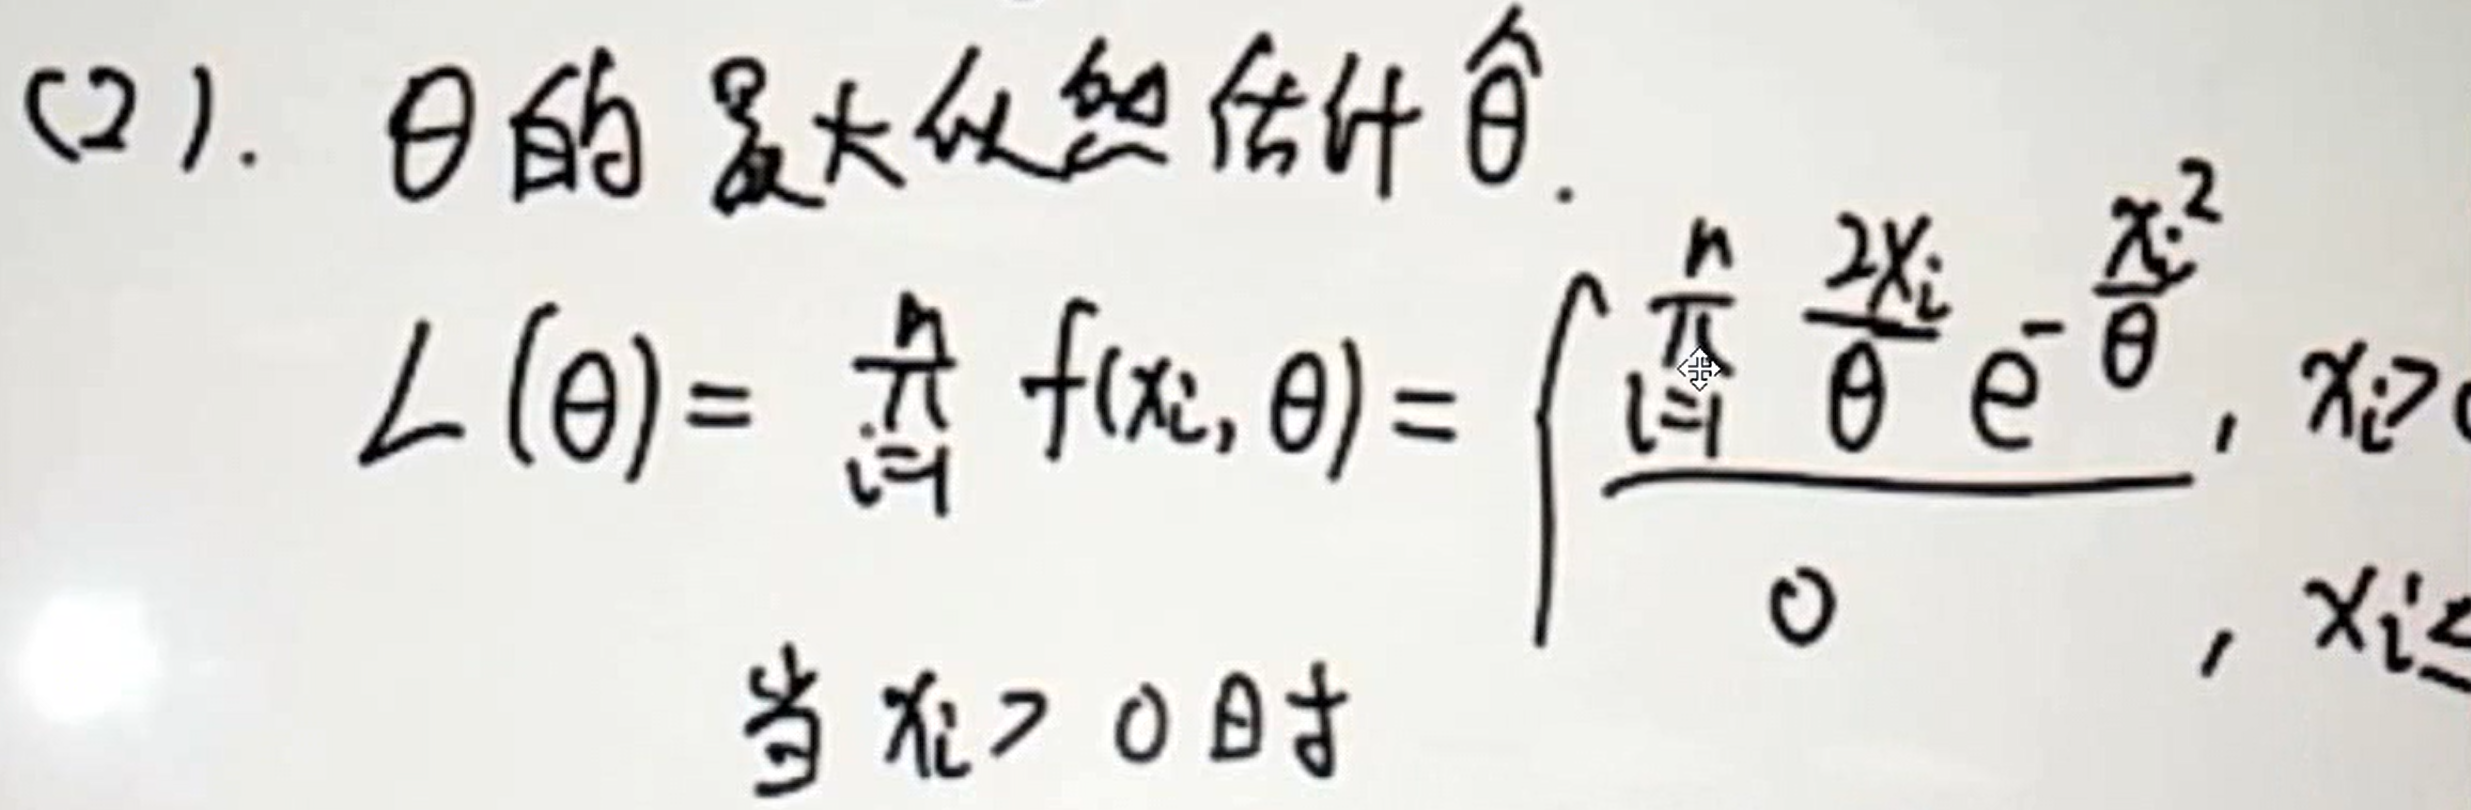 (2). θ的最大似然估计 θ̂.
L(θ)= ∏_{i=1}^{n} f(x_i, θ)= { ∏_{i=1}^{n} \frac{2x_i}{θ} e^{-\frac{x_i^2}{θ}}, x_i>0
0 , x_i≤
当 x_i > 0 时